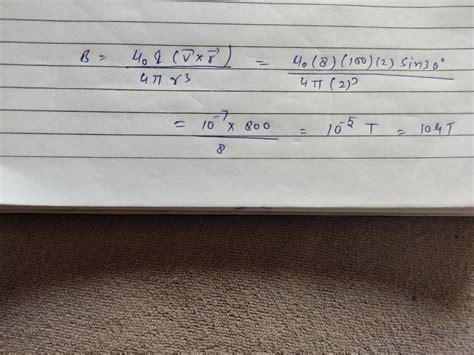 B = μ₀ q (v⃗ × r⃗) / 4π r³ = μ₀ (8) (100) (2) sin30° / 4π (2)³
= 10⁻⁷ × 800 / 8 = 10⁻⁵ T = 10μT